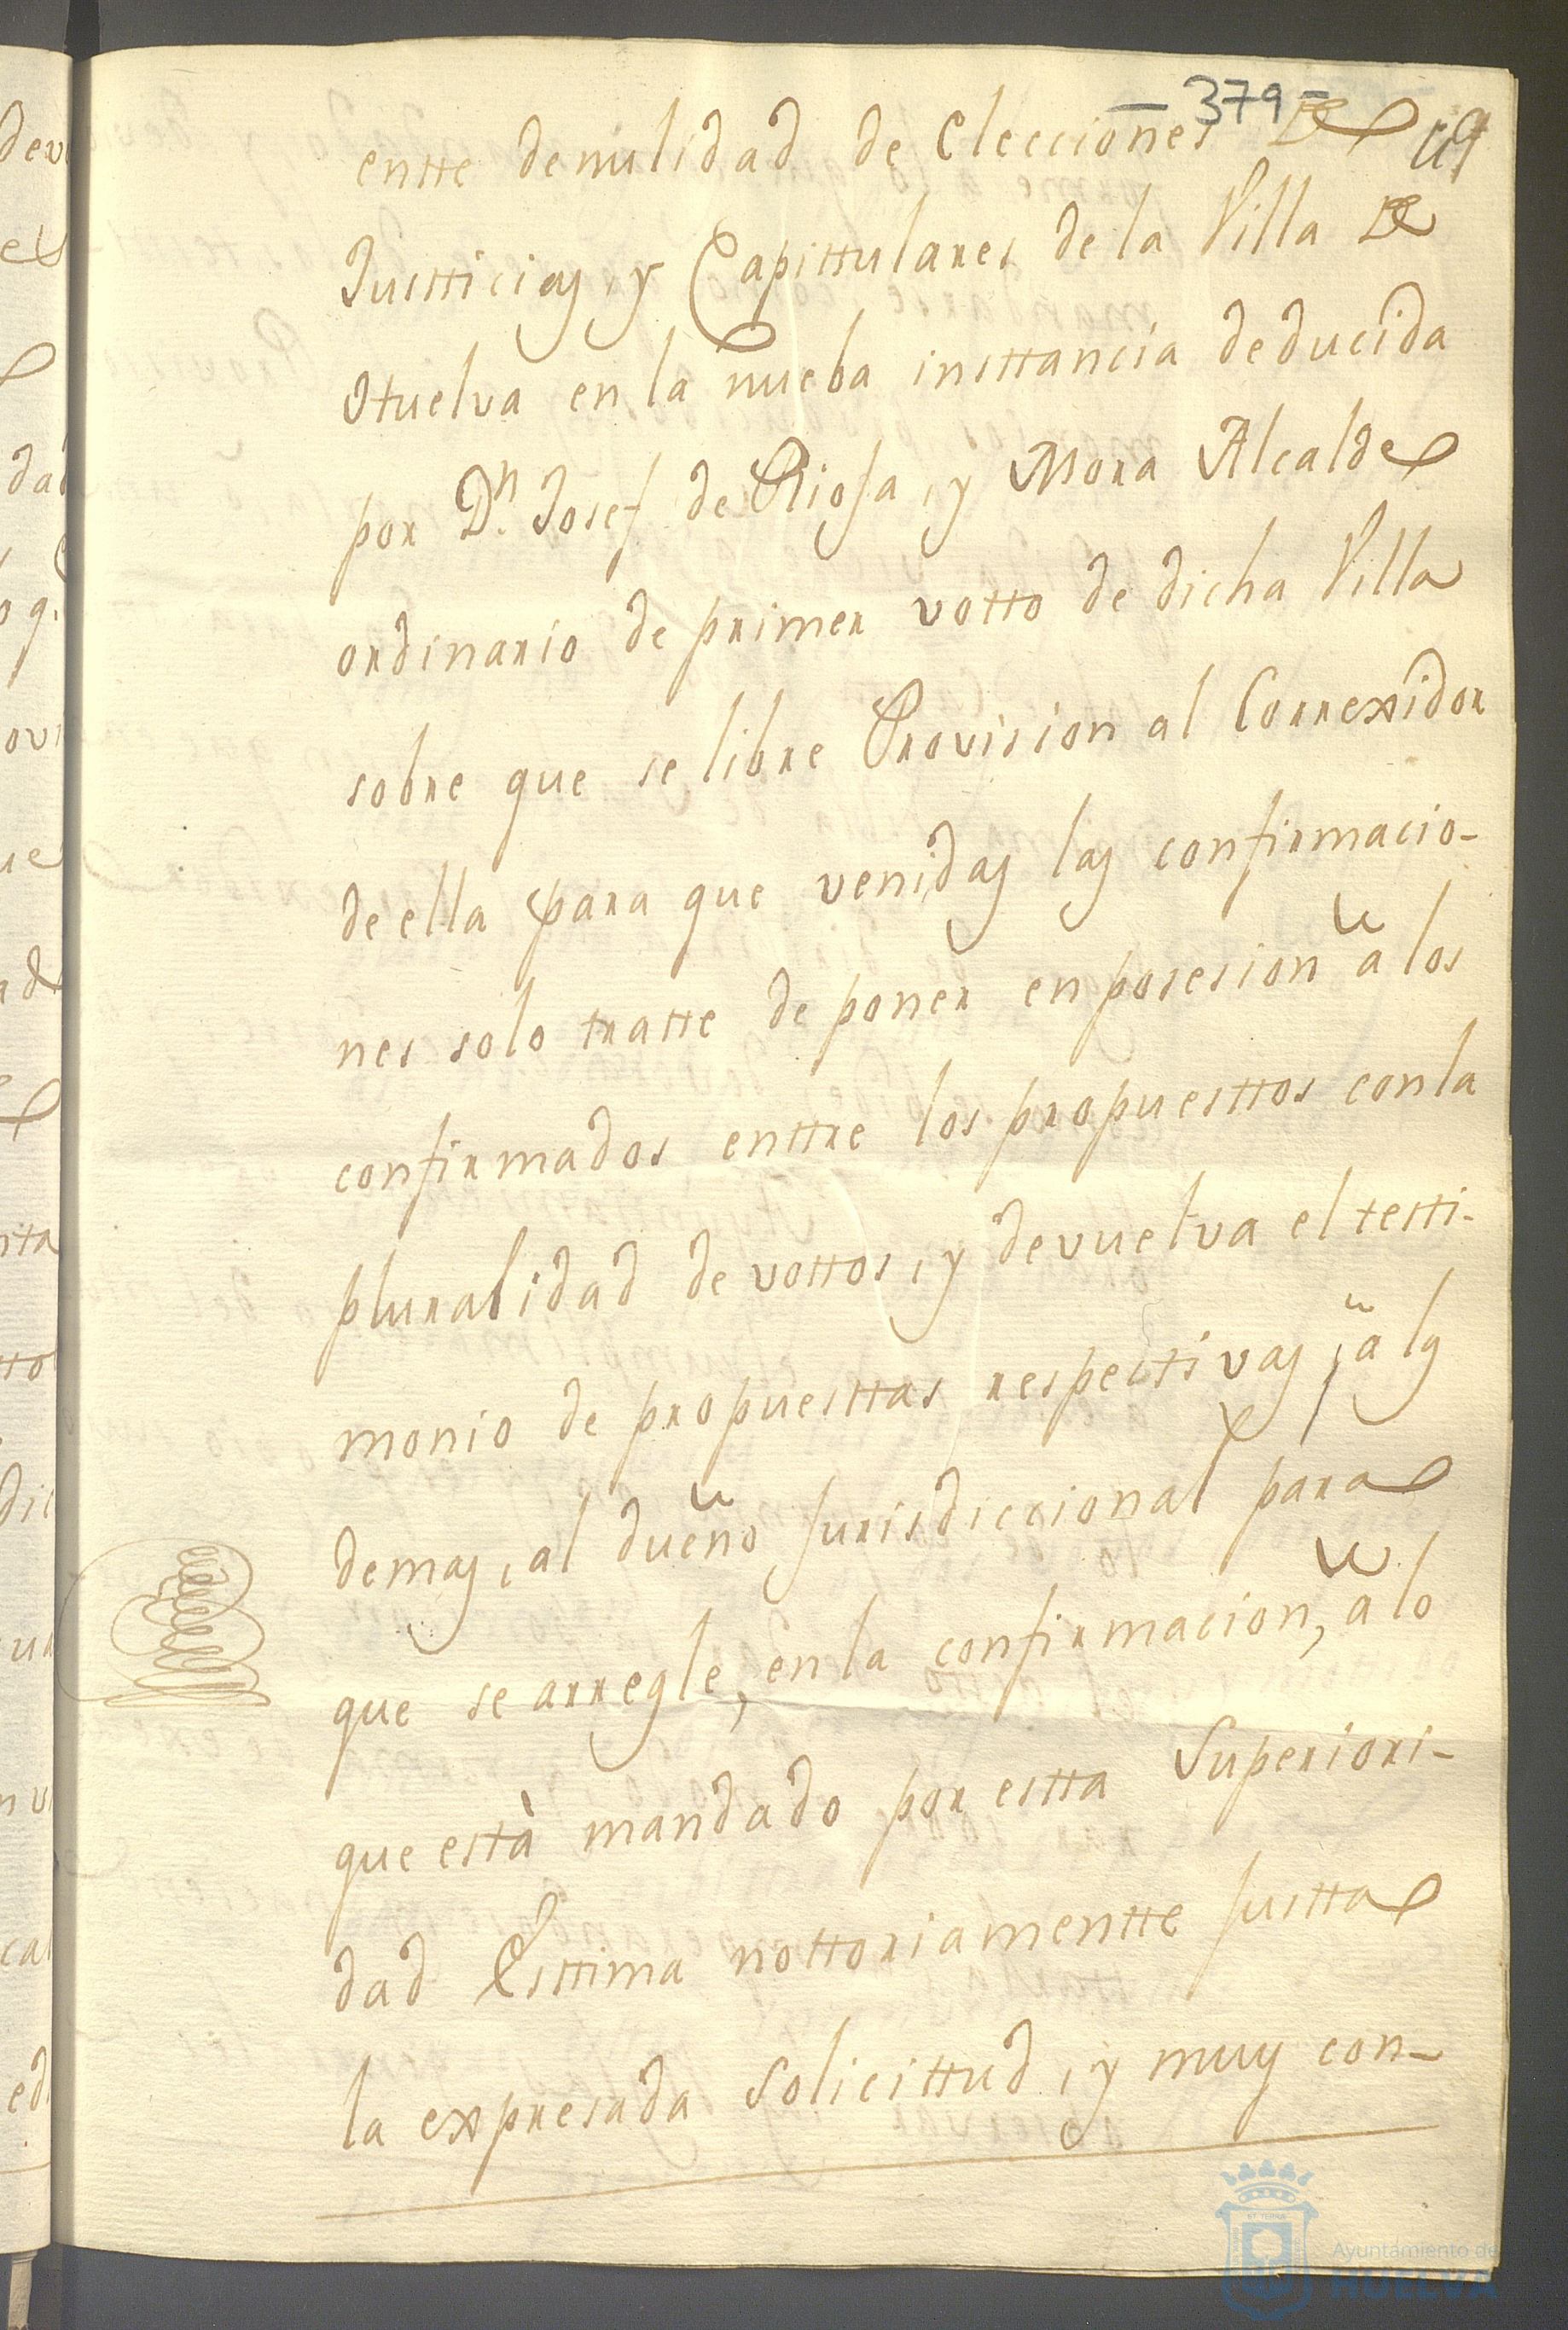 - 379 -
entte de nulidad de Elecciones De
Justticias, y Capittulares de la Villa De
Huelva en la nueba insttancia deducida
por Dn. Josef de Rioja, y Mora Alcalde
ordinario de primer votto de dicha Villa
sobre que se libre Provision al Correxidor
de ella para que venidas las confirmacio-
nes solo tratte de poner en posesion â los
confirmados enttre los propuesttos con la
pluralidad de vottos, y devuelva el testti-
monio de propuesttas respecttivas, â las
demas, al dueño Jurisdiccional para
que se arregle, en la confirmacion, â lo
que està mandado por estta Superiori-
dad Esttima nottoriamentte Justta
la expresada Solicittud, y muy con-
Ayuntamiento de
HUELVA